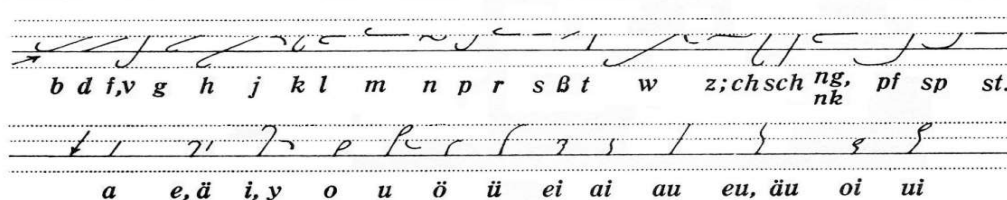 b d f,v g h j k l m n p r s ß t w z; ch sch ng, nk pf sp st.
a e, ä i, y o u ö ü ei ai au eu, äu oi ui